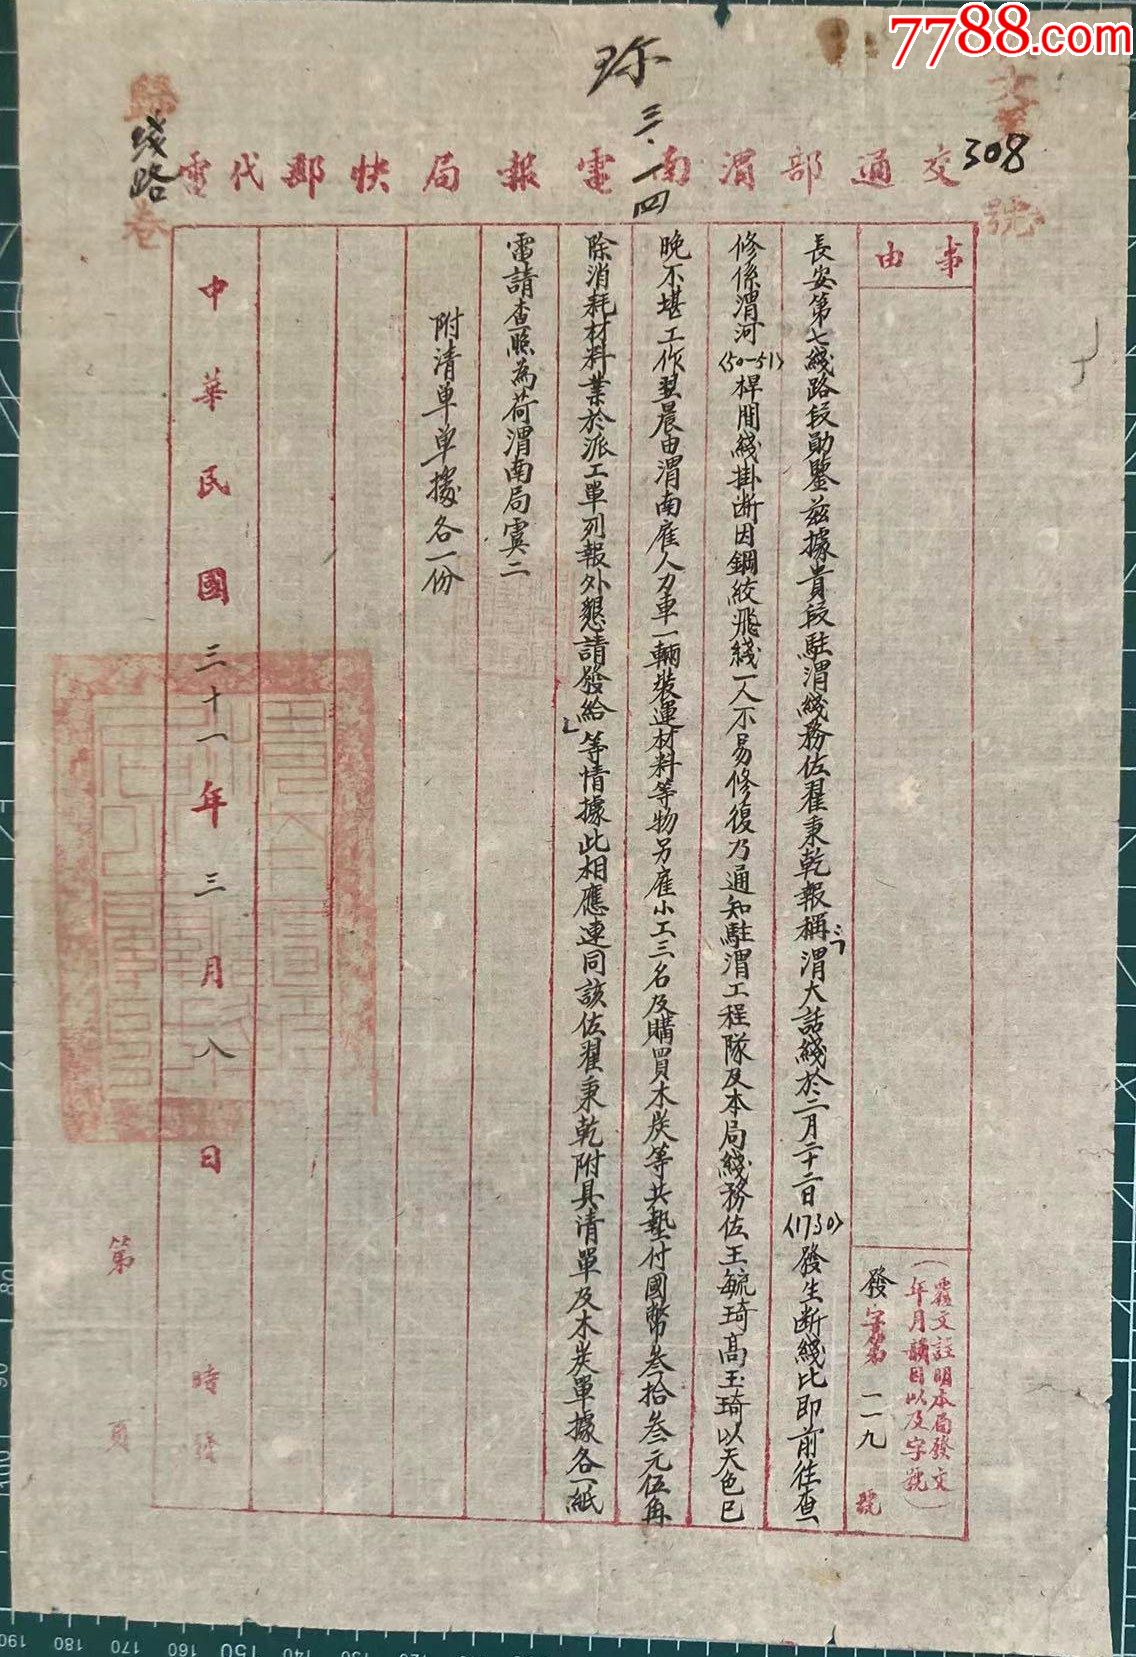 7788.com
珎
三.一四
308
號
歸
綫路
卷
交通部渭南電報局快郵代電
事由
覆文註明本局發文
年月韻目以及字號
發字第二一九號
長安第七綫路段勛鑒茲據貴段駐渭綫務佐翟秉乾報稱渭大話綫於二月二十二日(1730)發生断綫比即前往查
修係渭河(50-51)桿間綫掛断因鋼絞飛綫一人不易修復乃通知駐渭工程隊及本局綫務佐王毓琦高玉琦以天色已
晚不堪工作翌晨由渭南雇人力車一輛裝運材料等物另雇小工三名及購買木炭等共墊付國幣叁拾叁元伍角
除消耗材料業於派工單列報外懇請發給等情據此相應連同該佐翟秉乾附具清單及木炭單據各一紙
電請查照為荷渭南局寞二
附清單單據各一份
中華民國三十一年三月八日
時發
第 頁